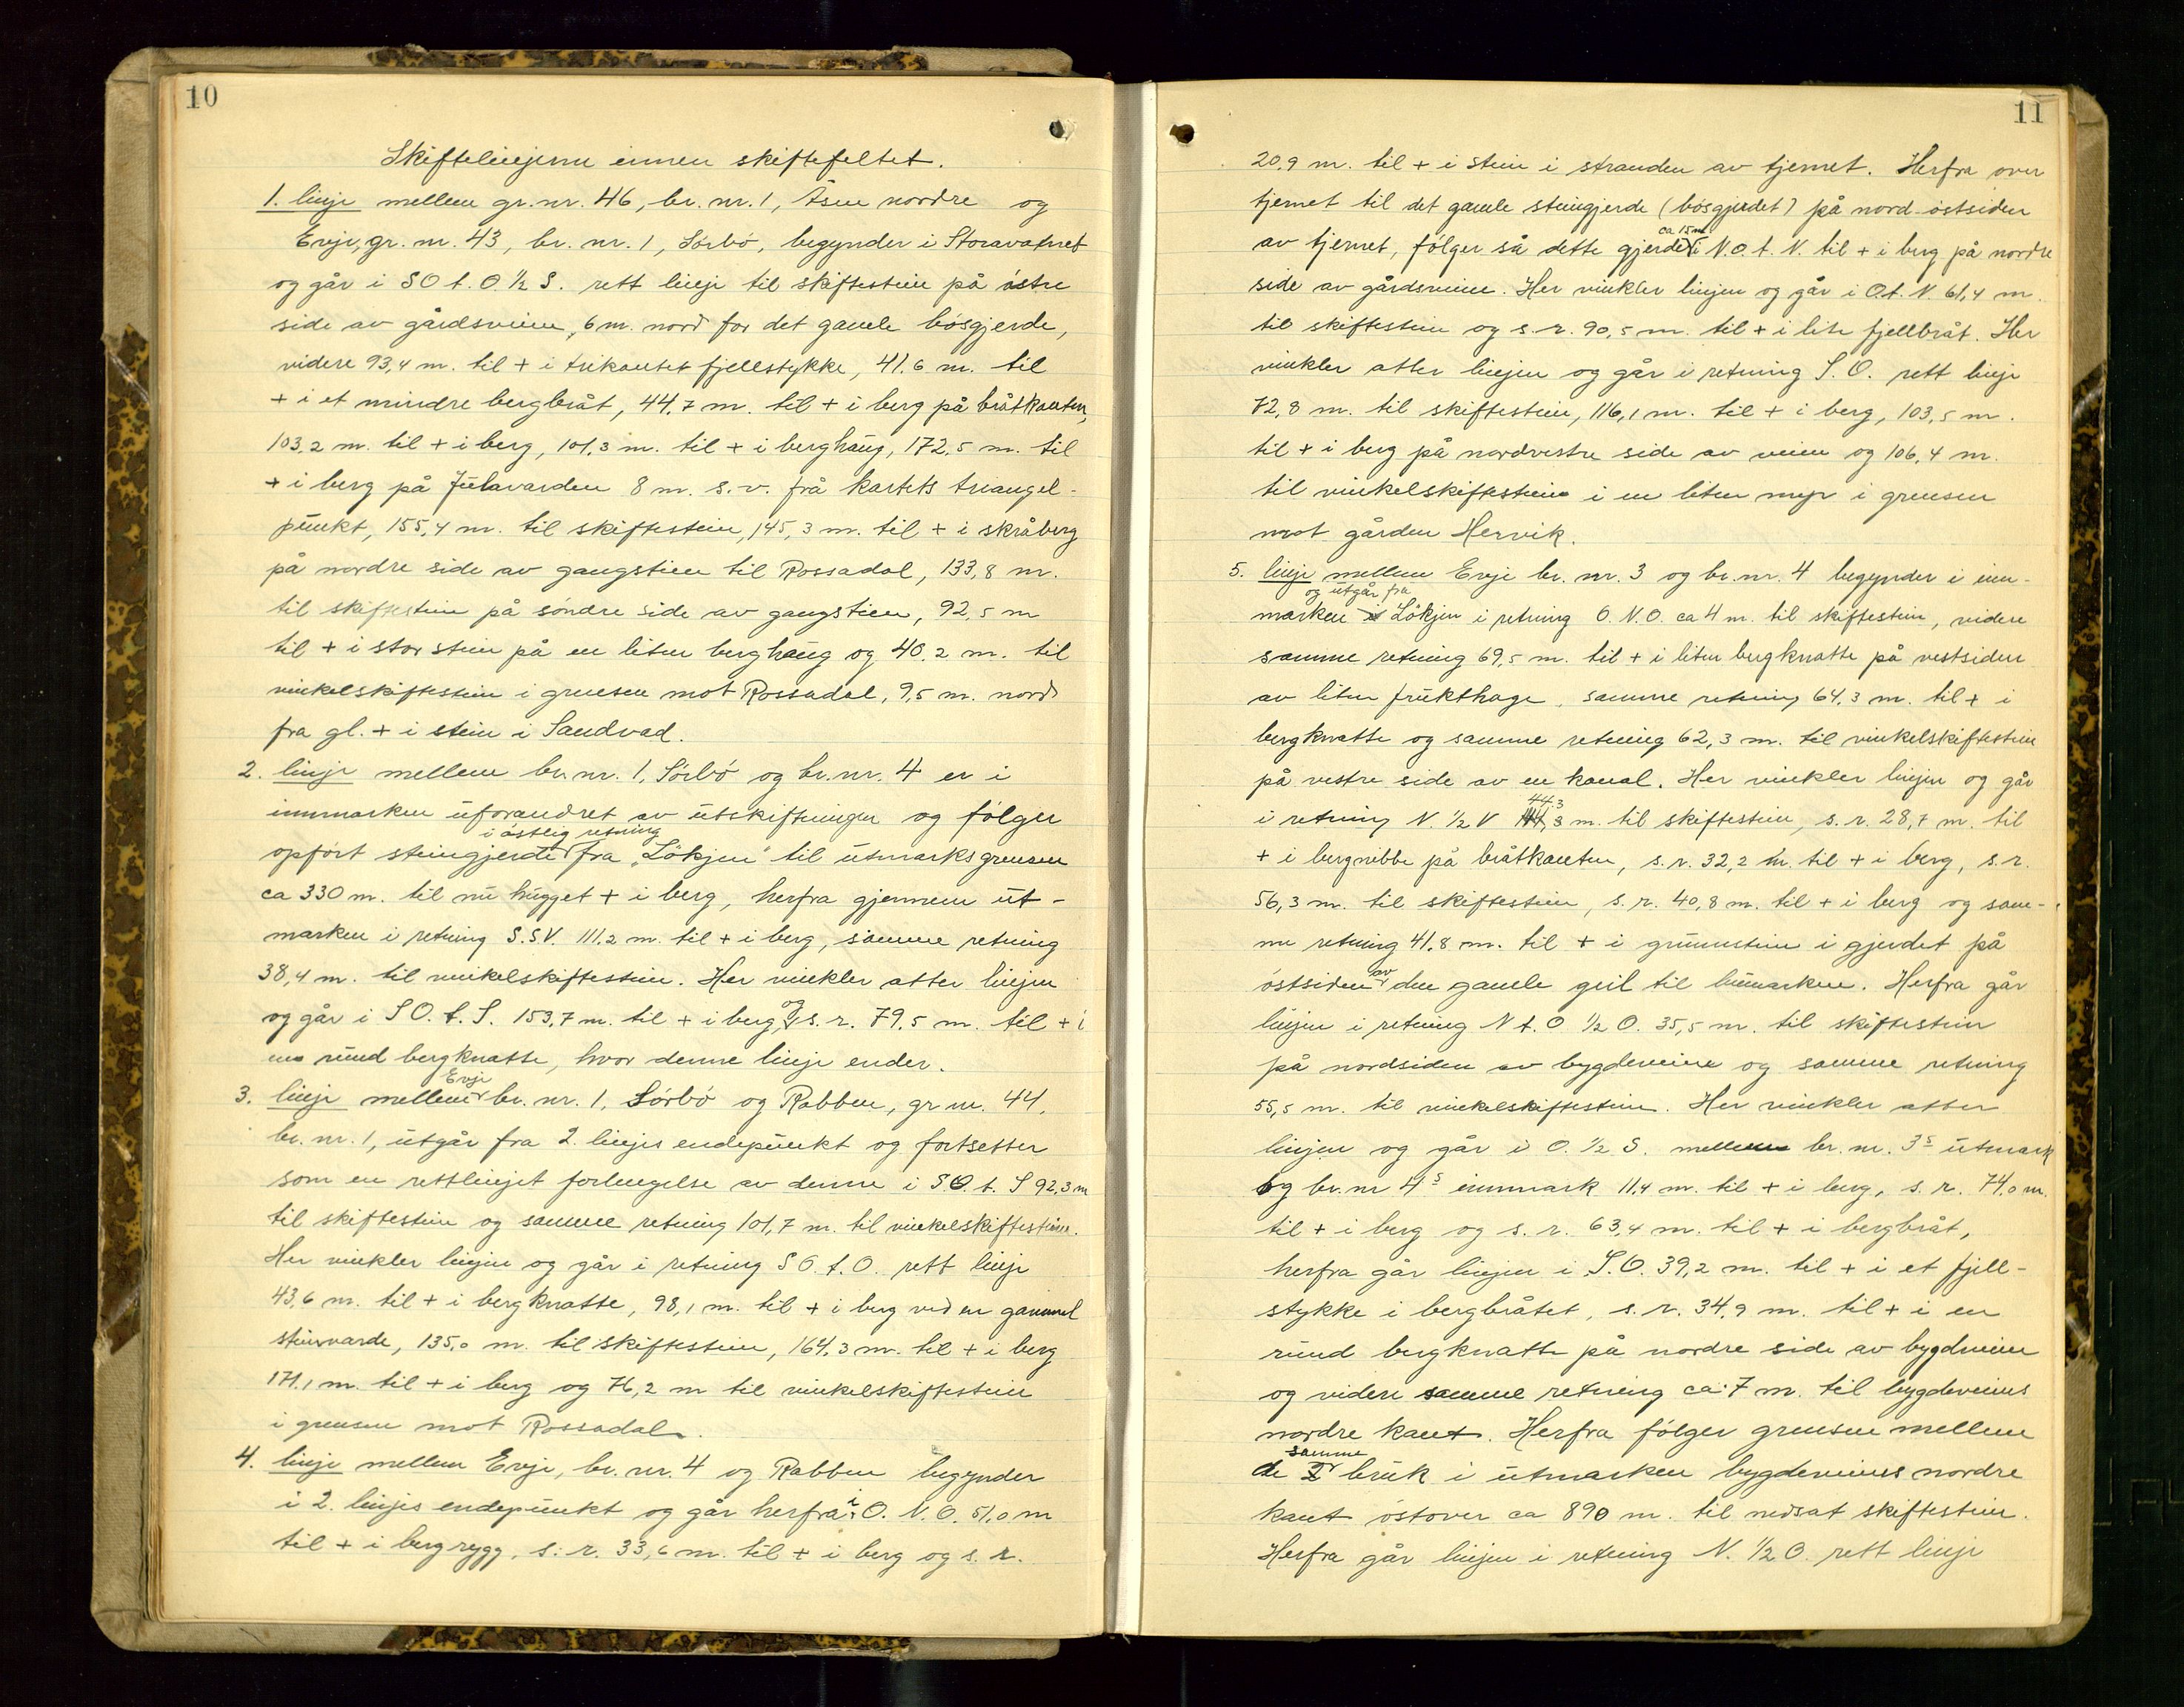 10
Skiftelinjerne innen skiftefeltet.
1. linje mellem gr. nr. 46, br. nr. 1, Åsen nordre og
Evje, gr. nr. 43, br. nr. 1, Sörbö, begynder i Storavatnet
og går i SO t. O. ½ S. rett linje til skiftestein på östre
side av gårdsveien, 6 m. nord for det gamle bösgjerde,
videre 93,4 m. til + i trekantet fjellstykke, 41,6 m. til
+ i et mindre bergbråt, 44,7 m. til + i berg på bråtkanten,
103,2 m. til + i berg, 101,3 m. til + i berghaug, 172,5 m. til
+ i berg på Julavarden 8 m. s.v. frå kartets triangel-
punkt, 155,4 m. til skiftestein, 145,3 m. til + i skråberg
på nordre side av gangstien til Rossadal, 133,8 m.
til skiftestein på söndre side av gangstien, 92,5 m
til + i stor stein på en liten berghaug og 40,2 m. til
vinkelskiftestein i grensen mot Rossadal, 9,5 m. nord
fra gl. + i stein i Sandvad.
2. linje mellem br. nr. 1, Sörbö og br. nr. 4 er i
innmarken uforandret av utskiftningen og følger
i östlig retning
opfört steingjerde fra "Lökjen" til utmarksgrensen
ca 330 m. til nu hugget + i berg, herfra gjennem ut-
marken i retning S.SV. 111,2 m. til + i berg, samme retning
38,4 m. til vinkelskiftestein. Her vinkler atter linjen
og går i SO. t. S. 153,7 m. til + i berg, og s. r. 79,5 m. til + i
en rund bergknatte, hvor denne linje ender.
Evje
3. linje mellem br. nr. 1, Sörbö og Rabben, gr nr. 44,
br. nr. 1, utgår fra 2. linjes endepunkt og fortsetter
som en rettlinjet forlengelse av denne i SO. t. S 92,3 m
til skiftestein og samme retning 101,7 m. til vinkelskiftestein.
Her vinkler linjen og går i retning SO. t. O. rett linje
43,6 m. til + i bergknatte, 98,1 m. til + i berg ved en gammel
steinvarde, 135,0 m. til skiftestein, 164,3 m. til + i berg
171,1 m. til + i berg og 76,2 m til vinkelskiftestein
i grensen mot Rossadal.
4. linje mellem Evje, br. nr. 4 og Rabben begynder
i 2. linjes endepunkt og går herfra i O. N. O. 51,0 m
til + i bergrygg, s. r. 33,6 m. til + i berg og s. r.
11
20,9 m. til + i stein i stranden av tjernet. Herfra over
tjernet til det gamle steingjerde (bösgjerdet) på nord-östsiden
ca 15 m
av tjernet, fölger så dette gjerde i N.O. t. N. til + i berg på nordre
side av gårdsveien. Her vinkler linjen og går i O.t. N. 61,4 m.
til skiftestein og s. r. 90,5 m. til + i lite fjellbråt. Her
vinkler atter linjen og går i retning S. O. rett linje
72,8 m. til skiftestein, 116,1 m. til + i berg, 103,5 m.
til + i berg på nordvestre side av veien og 106,4 m.
til vinkelskiftestein i en liten myr i grensen
mot gården Hervik.
5. linje mellem Evje br. nr. 3 og br. nr. 4 begynder i inn-
og utgår fra
marken i Lökjen i retning O. N. O. ca 4 m. til skiftestein, videre
samme retning 69,5 m. til + i liten bergknatte på vestsiden
av liten frukthage, samme retning 64,3 m. til + i
bergknatte og samme retning 62,3 m. til vinkelskiftestein
på vestre side av en kanal. Her vinkler linjen og går
44,3
i retning N. ½ V 44,3 m. til skiftestein, s. r. 28,7 m. til
+ i bergnibbe på bråtkanten, s. r. 32,2 m. til + i berg, s. r.
56,3 m. til skiftestein, s. r. 40,8 m. til + i berg og sam-
me retning 41,8 m. til + i grunnstein i gjerdet på
östsiden av den gamle geil til bumarken. Herfra går
linjen i retning N t. O ½ O. 35,5 m. til skiftestein
på nordsiden av bygdeveien og samme retning
55,5 m. til vinkelskiftestein. Her vinkler atter
linjen og går i O. ½ S. mellem br. nr. 3s utmark
og br. nr 4s innmark 11,4 m. til + i berg, s. r. 74,0 m.
til + i berg og s. r. 63,4 m. til + i bergbråt,
herfra går linjen i S.O. 39,2 m. til + i et fjell-
stykke i bergbråtet, s. r. 34,9 m. til + i en
rund bergknatte på nordre side av bygdeveien
og videre samme retning ca. 7 m. til bygdeveiens
nordre kant. Herfra fölger grensen mellem
samme
de 2 bruk i utmarken bygdeveiens nordre
kant östover ca 890 m. til nedsat skiftestein.
Herfra går linjen i retning N. ½ O. rett linje